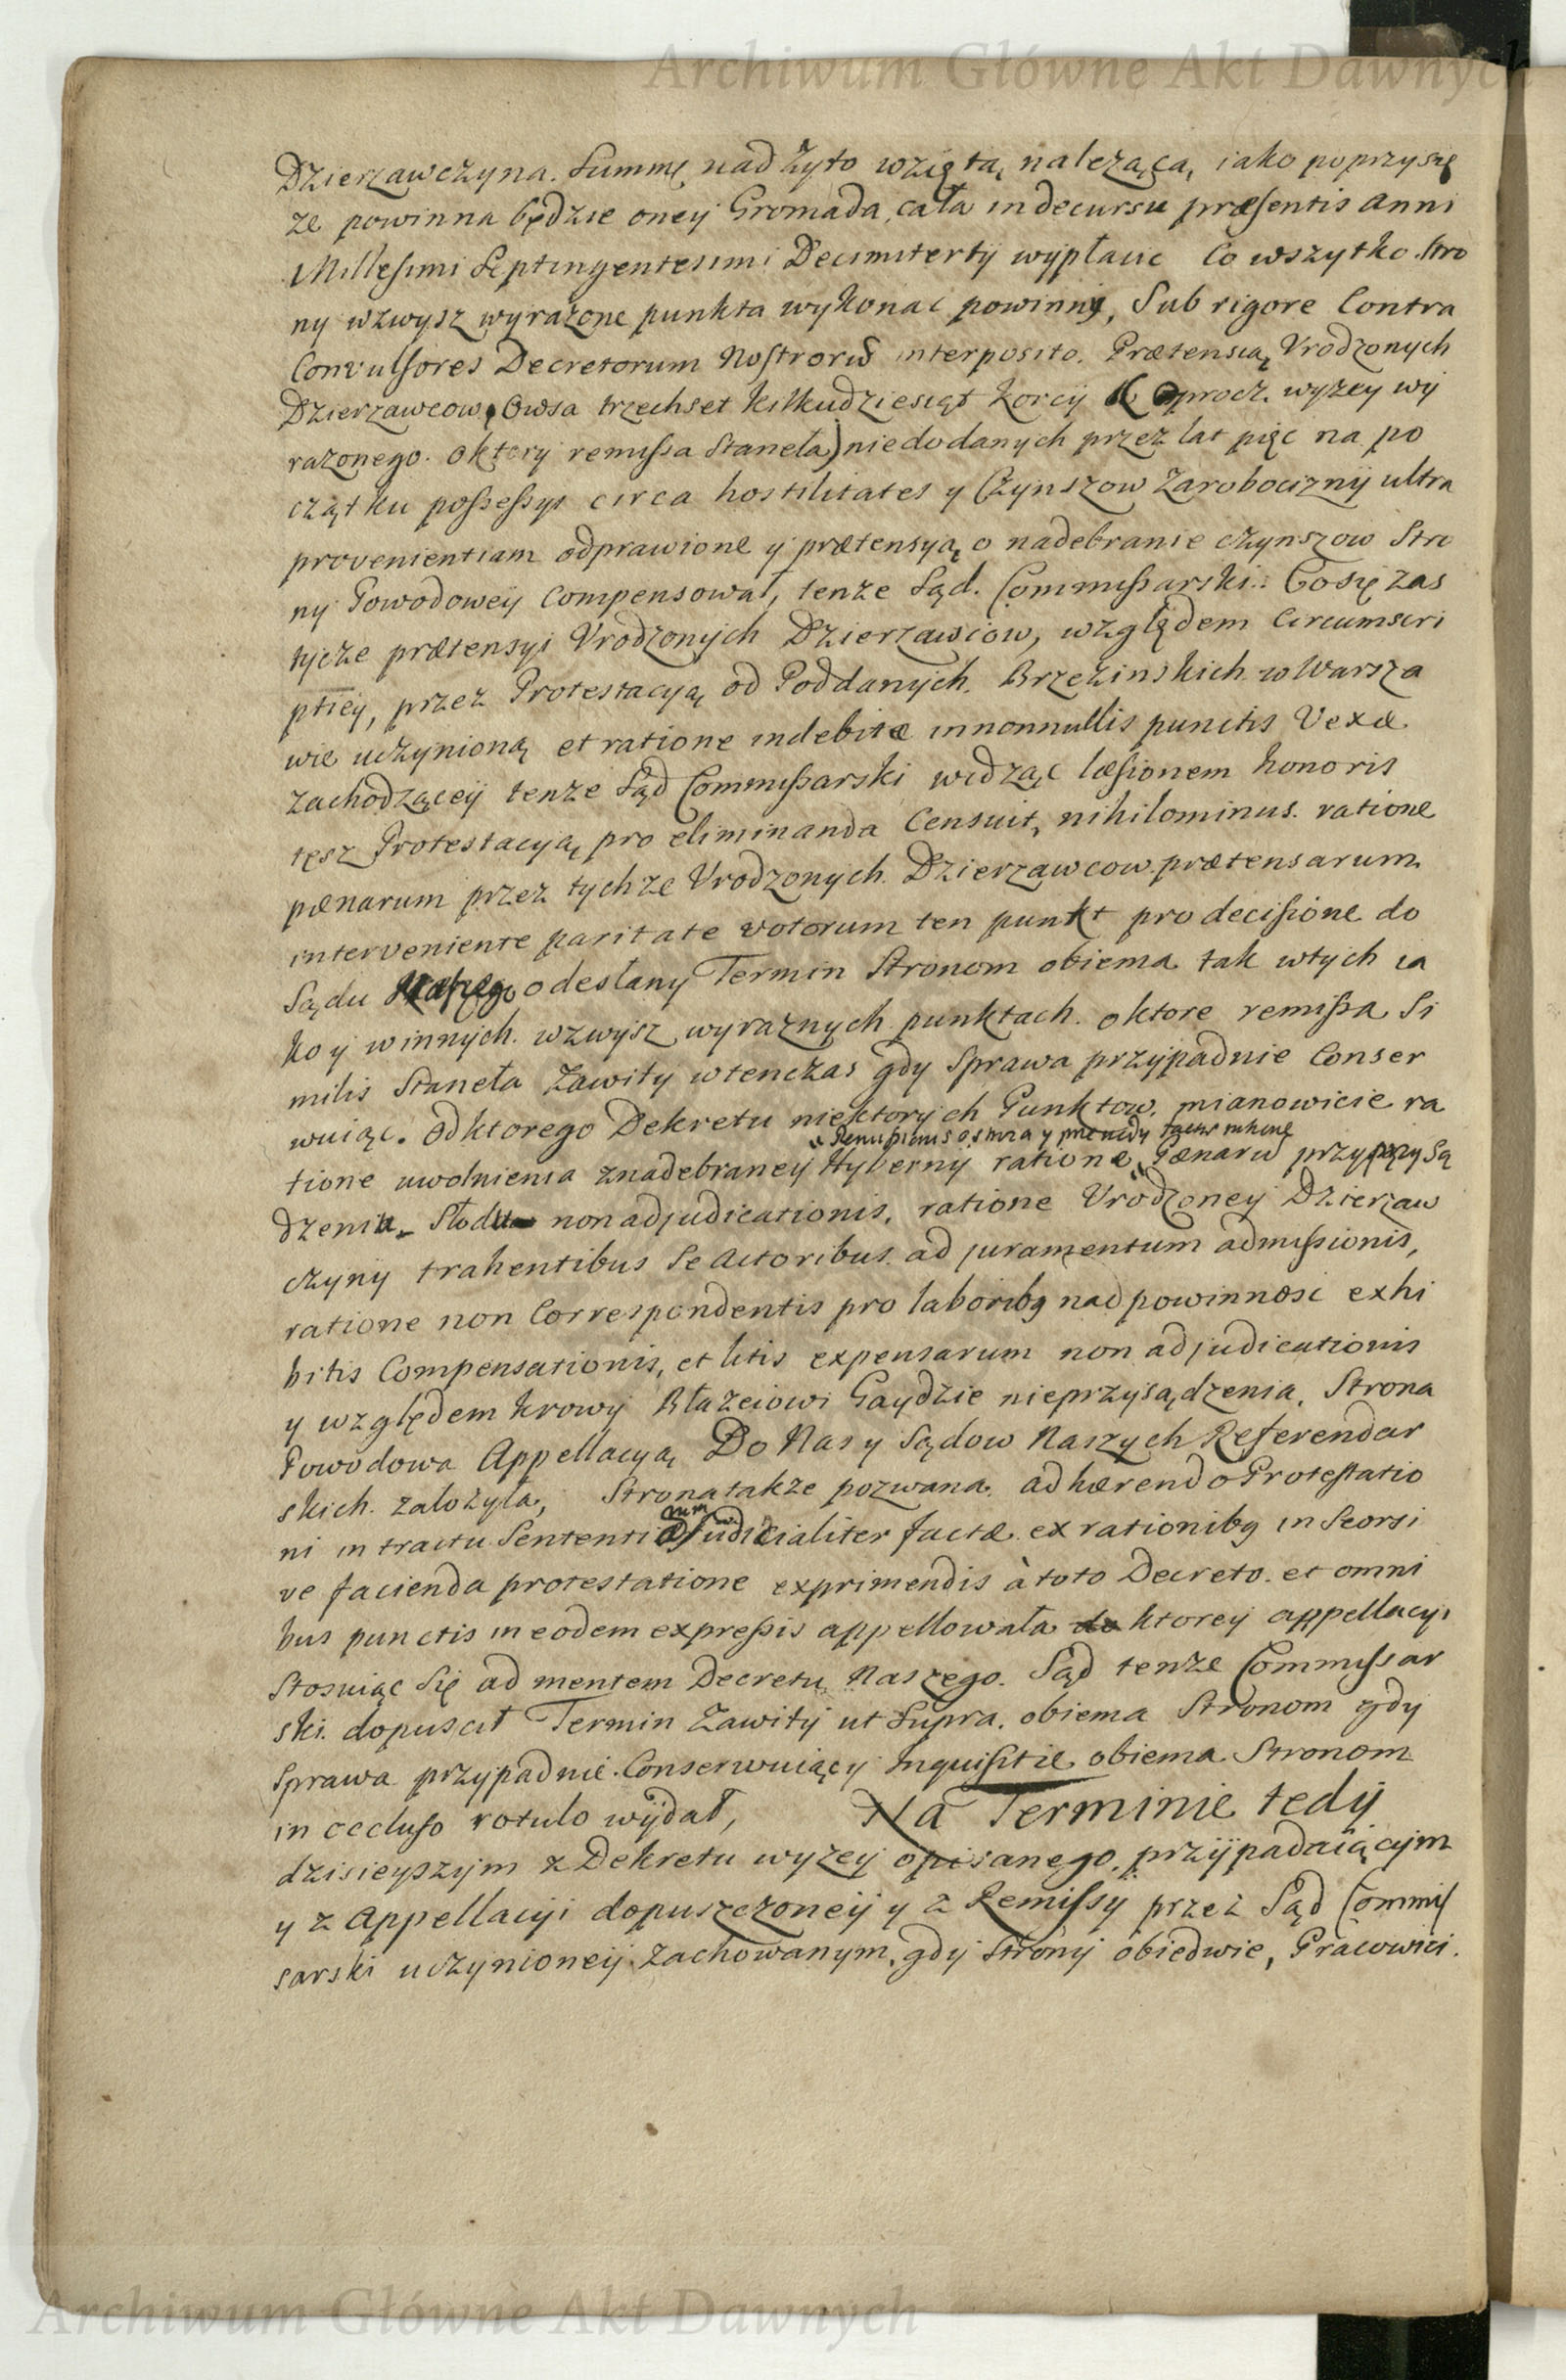 Archiwum Główne Akt Dawnych
Dzierzawczyna. Summę nad Zyto wziętą, nalezącą, iako poprzysię
ze powinna będzie oney Gromada, cała in decursu præsentis Anni
Millesimi Septingentesimi Decimitertij wypłacic Co wszytko Stro
ny wzwysz wyrazone punkta wykonac powinny, Sub rigore Contra
Convulsores Decretorum Nostrorū interposito. Prætensią Vrodzonych
Dzierzawcow, Owsa trzechset kilkudziesiąt Korcy (oprocz. wyzey wy
razonego. o ktory remissa Staneła) niedodanych przez lat pięc na po
czątku possessyi circa hostilitates y Czynszow Zarobocizny ultra
provenientiam odprawione y prætensyą o nadebranie czynszow Stro
ny Powodowey Compensował, tenze Sąd. Commissarski. Co się zas
tycze prætensyi Vrodzonych Dzierzawcow, względem Circumscri
ptiey, przez Protestacyą od Poddanych. Brzezinskich w Warsza
wie uczynioną et ratione indebitæ in nonnullis punctis Vexæ
zachodzącey tenze Sąd Commissarski widząc læsionem honoris
tęsz Protestacyą pro eliminanda Censuit, nihilominus. ratione
pænarum przez tychze Vrodzonych. Dzierzawcow prætensarum
interveniente paritate votorum ten punkt pro decisione do
Sądu Naszego odesłany Termin Stronom obiema tak w tych ia
ko y w innych. wzwysz wyraznych punktach. o ktore remissa Si
milis Staneła Zawity wtenczas gdy Sprawa przypadnie Conser
wuiąc. Od ktorego Dekretu niektorych Punktow. mianowicie ra
tione uwolnienia z nadebraney Hyberny ratione Pænarū przysą
dzeniu Słodu non adjudicationis, ratione Vrodzoney Dzierzaw
czyny trahentibus Se Actoribus ad juramentum admissionis,
ratione non Correspondentis pro laboribq nad powinnosc exhi
bitis Compensationis, et litis expensarum non adjudicationis
y względem krowy Błazeiowi Gaydzie nieprzysądzenia, Strona
Powodowa Appellacyą Do Nas y Sądow Naszych Referendar
skich. załozyła, Strona takze pozwana. adhærendo Protestatio
ni in tractu Sententiarum Judicialiter factæ ex rationibq in Seorsi
ve facienda protestatione exprimendis à toto Decreto. et omni
bus punctis in eodem expressis appellowała ktorey appellacyi
Stosuiąc Się ad mentem Decretu Naszego. Sąd tenze Commissar
ski. dopuscił Termin Zawity ut Supra. obiema Stronom gdy
Sprawa przypadnie. Conserwuiący Inquisitie obiema Stronom
in occluso rotulo wydał, Na Terminie tedy
dzisieyszym z Dekretu wyzey opisanego, przypadaiącym
y z Appellacyi dopuszczoney y z Remissy przez Sąd Commis
sarski uczynioney zachowanym, gdy Strony obiedwie, Pracowici.
Archiwum Główne Akt Dawnych